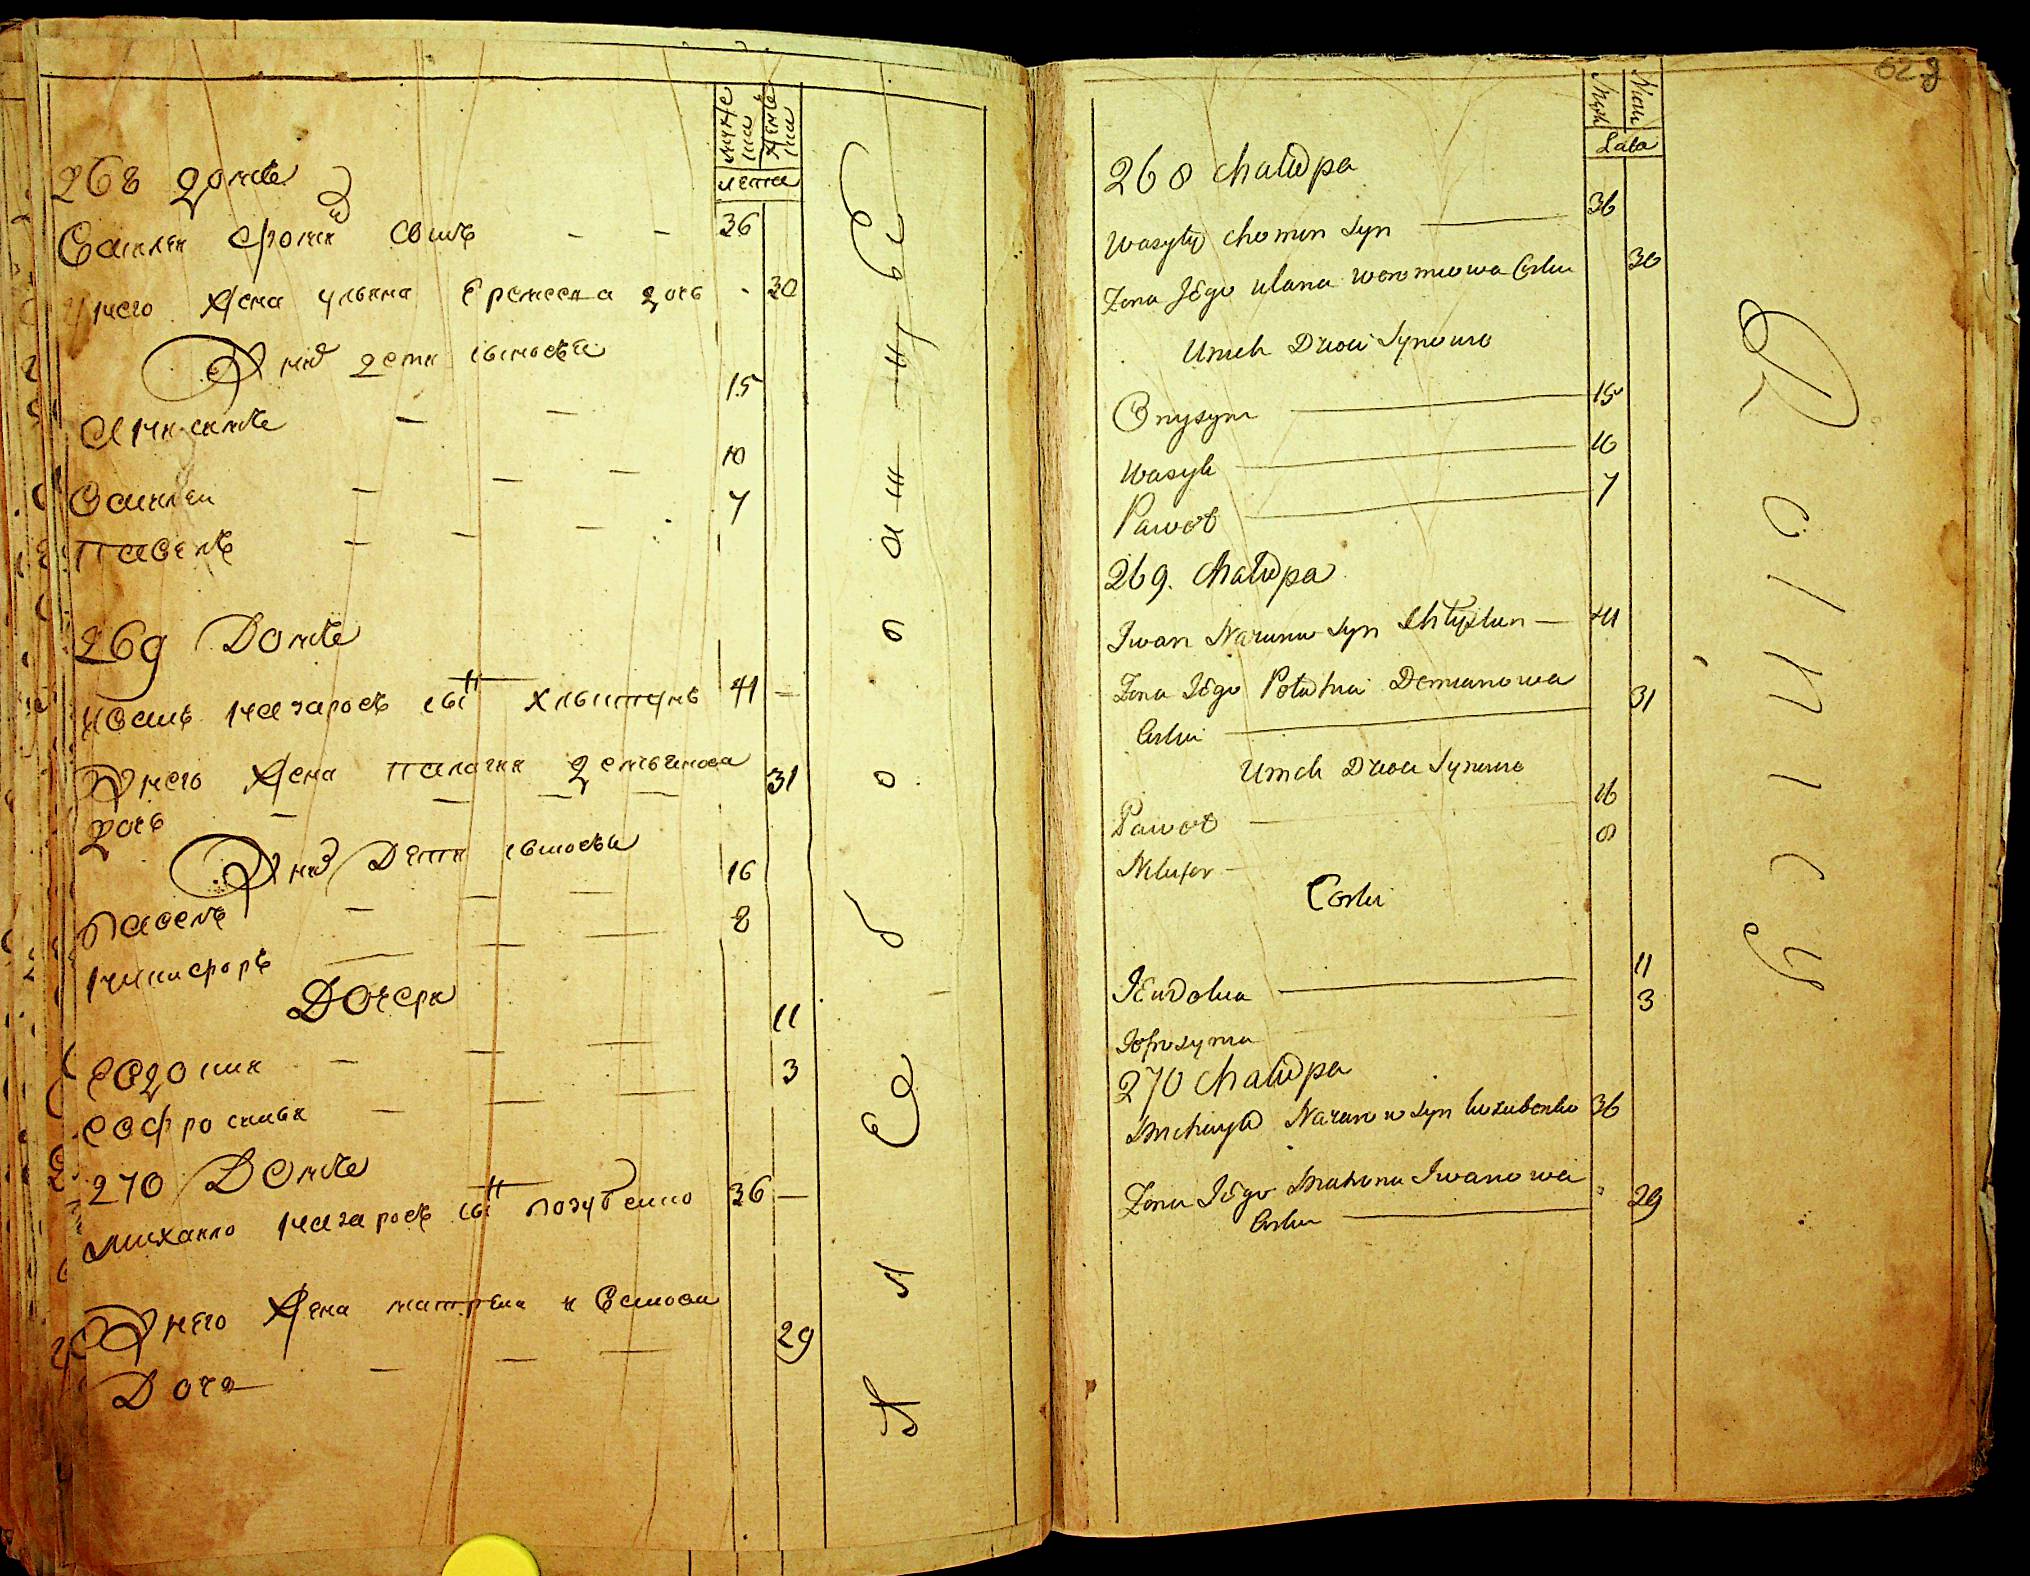 мужеска
женска
лета
268 Домъ
Василей Фомин сынъ 36
У него жена Ульяна Еремеева дочь 30
У них дети сыновья
Анисимъ 15
Василей 10
Павелъ 7
269 Домъ
Иванъ Назаровъ сын Хлыстунъ 41
У него жена Палагия Демьянова 31
дочь
У них Дети сыновья
Павелъ 16
Никифоръ 8
Дочери
Евдокия 11
Евфросинья 3
270 Домъ
Михайло Назаровъ сын Лозубенко 36
У него жена матрена Иванова 29
Дочь
62
Męsk
Niew
Lata
268 Chałupa
Wasyly Chomin Syn 36
Zona Jego Ulana Woromiowa Corka 30
U nich Dzieci Synowie
Onysym 15
Wasyl 10
Paweł 7
269. Chałupa
Iwan Nazarów Syn Chłystun 41
Zona Jego Połachia Demianowa 31
Corka
U nich Dzieci Synowie
Paweł 16
Nikifor 8
Corki
Jewdokia 11
Jofrosyma 3
270 Chałupa
Michayło Nazarow Syn 36
Zona Jego Matrona Iwanowa 29
Corka
Rolnicy